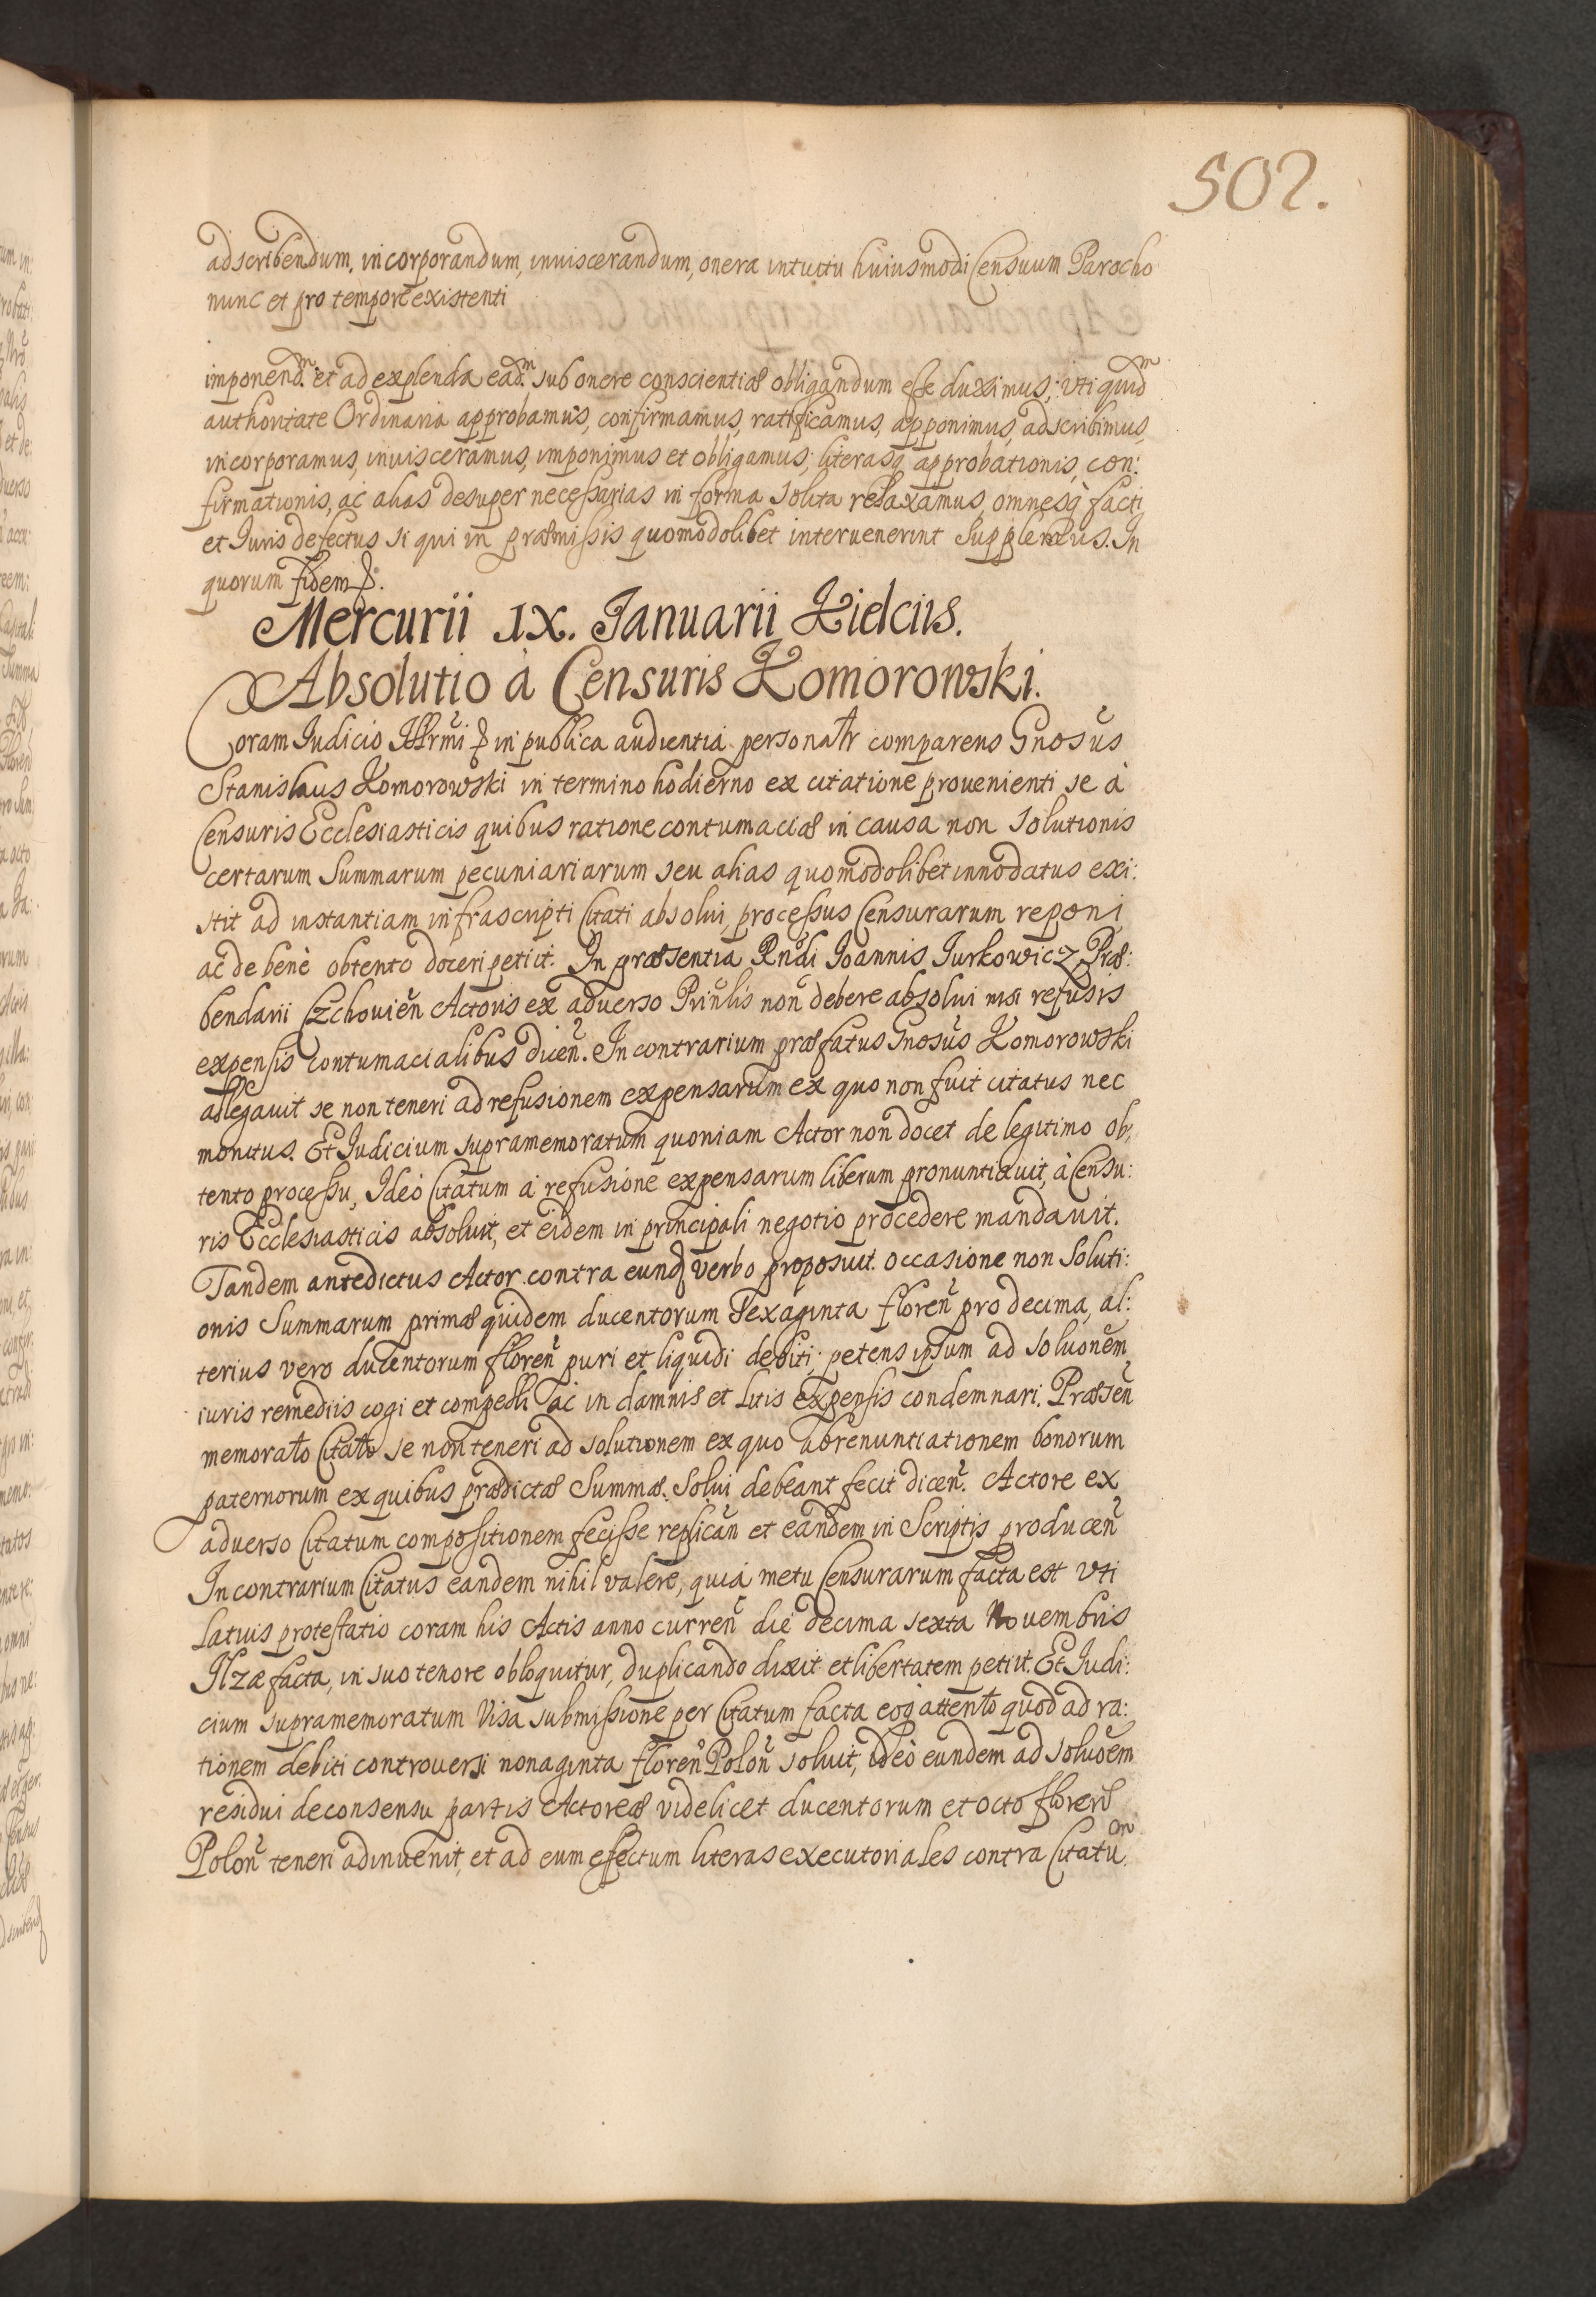 502.
adscribendum, incorporandum, inviscerandum, onera intuitu huiusmodi Censuum Parocho
nunc et pro tempore existenti
imponend.m et ad explenda ead.m sub onere conscientiæ obligandum esse duximus; Uti quid.m
authoritate Ordinaria approbamus, confirmamus, ratificamus, apponimus, adscribimus,
incorporamus, invisceramus, imponimus et obligamus; literasq approbationis, con:
firmationis, ac alias desuper necessarias in forma solita relaxamus, omnesq facti
et Iuris defectus si qui in præmissis quomodolibet intervenerint Supplemus. In
quorum fidem
Mercurii IX. Ianuarii Kielciis.
Absolutio à Censuris Komorowski.
Coram Iudicio Illrmi in publica audientia personalr comparens Gnosus
Stanislaus Komorowski in termino hodierno ex citatione provenienti se à
Censuris Ecclesiasticis quibus ratione contumaciæ in causa non solutionis
certarum Summarum pecuniariarum seu alias quomodolibet innodatus exi:
stit ad instantiam infrascripti Citati absolui, processus Censurarum reponi
ac de benè obtento doceri petiit. In præsentia Rndi Ioannis Iurkowicz Præ:
bendarii Czchovien Actoris ex adverso Prinlis non debere absolui nisi refusis
expensis contumacialibus dicen. In contrarium præfatus Gnosus Komorowski
allegauit se non teneri ad refusionem expensarum ex quo non fuit citatus nec
monitus. Et Iudicium supramemoratum quoniam Actor non docet de legitimo ob,
tento processu, Ideò Citatum à refusione expensarum liberum pronuntiavit, à Censu:
ris Ecclesiasticis absoluit, et eidem in principali negotio procedere mandavit.
Tandem antedictus Actor contra eund verbo proposuit occasione non Soluti:
onis Summarum primæ quidem ducentorum Sexaginta floren pro decima, al:
terius vero ducentorum floren puri et liquidi debiti; petens ipsum ad soluonem
iuris remediis cogi et compelli ac in damnis et Litis expensis condemnari. Præsen
memorato Citato se non teneri ad solutionem ex quo abrenuntiationem bonorum
paternorum ex quibus prædictæ Summæ Solui debeant fecit dicen. Actore ex
adverso Citatum compositionem fecisse replican et eandem in Scriptis producen
In contrarium Citatus eandem nihil valere, quia metu Censurarum facta est Uti
Latius protestatio coram his Actis anno curren die decima sexta Novembris
Ilzæ facta, in suo tenore obloquitur, duplicando dixit et libertatem petiit. Et Iudi:
cium supramemoratum Visa submissione per Citatum facta eoq attento quod ad ra:
tionem debiti controversi nonaginta floren Polon soluit, ideò eundem ad soluoem
residui de consensu partis Actoreæ videlicet ducentorum et octo floren
Polon teneri adinvenit, et ad eum effectum literas executoriales contra Citatu.m